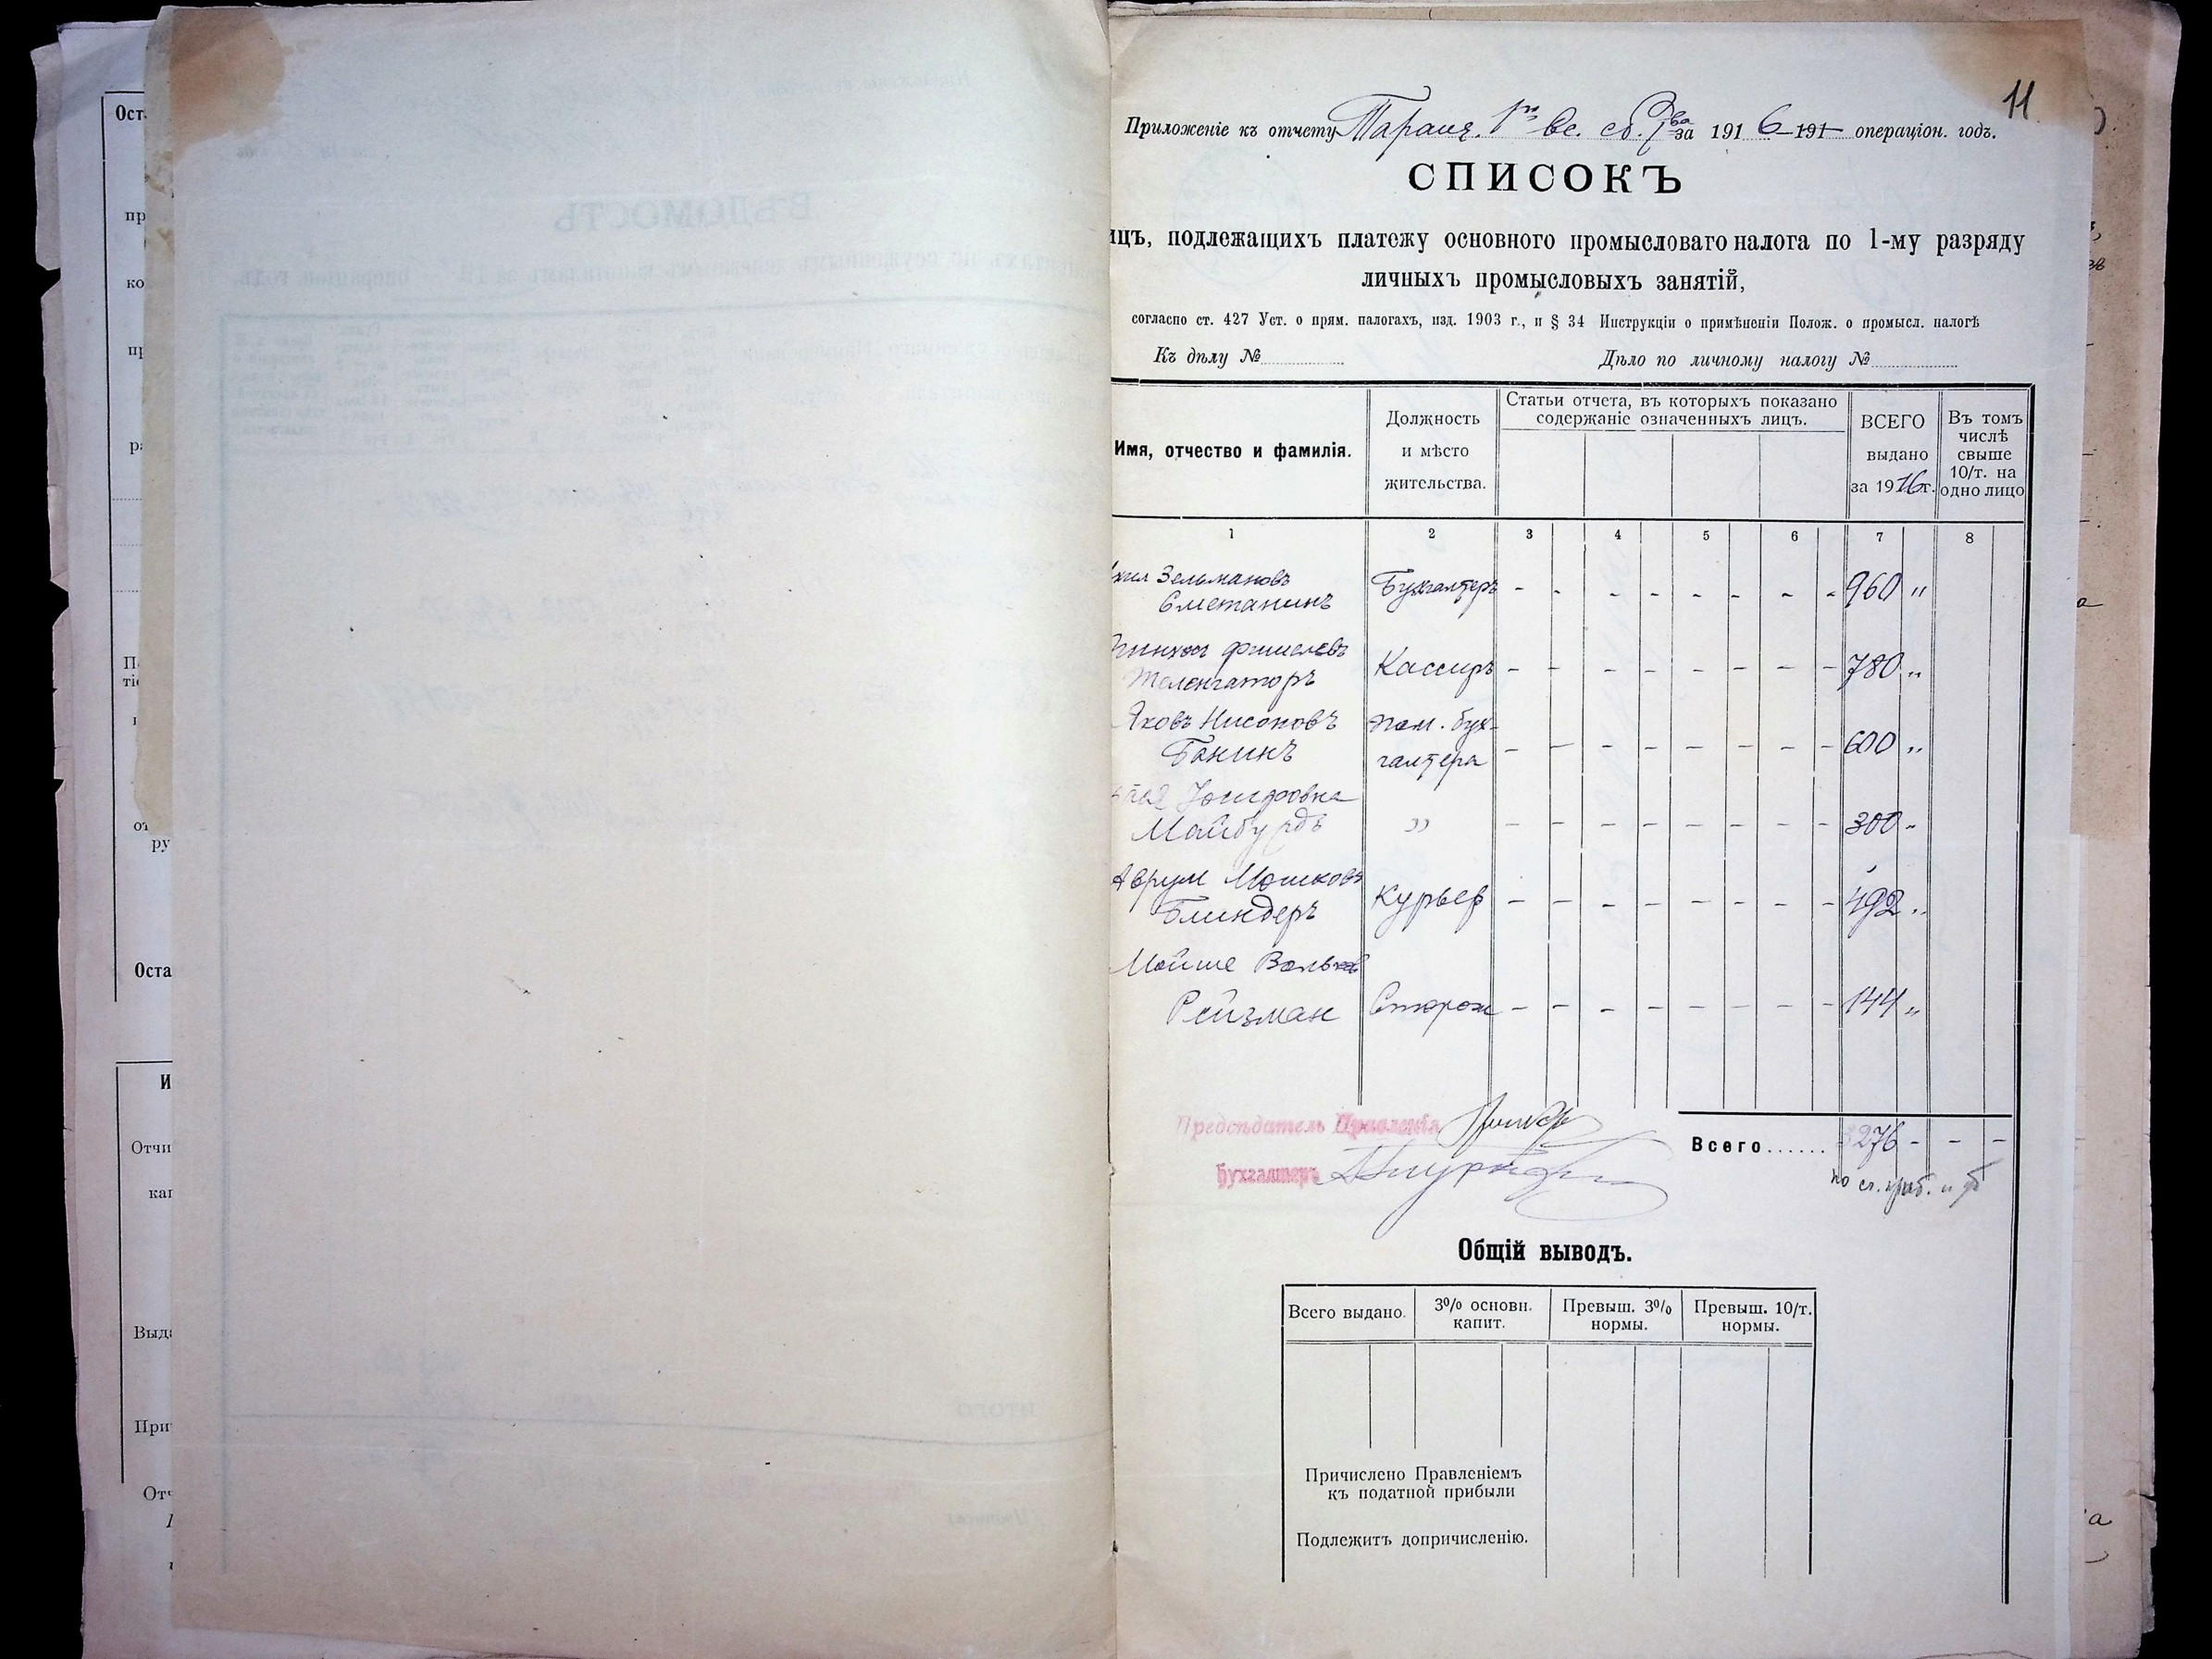 11
Приложеніе къ отчету Тараще. 1го вс. сб. Тва за 1916 191 операціон. годъ.
СПИСОКЪ
ицъ, подлежащихъ платежу основного промысловаго налога по 1-му разряду
личныхъ промысловыхъ занятій,
согласно ст. 427 Уст. о прям. налогахъ, изд. 1903 г., и § 34 Инструкціи о примѣненіи Полож. о промысл. налогѣ
Къ дѣлу № Дѣло по личному налогу №
Имя, отчество и фамилія.
Должность
и мѣсто
жительства.
Статьи отчета, въ которыхъ показано
содержаніе означенныхъ лицъ.
ВСЕГО
выдано
за 1916г.
Въ томъ
числѣ
свыше
10/т. на
одно лицо
1 2 3 4 5 6 7 8
Зельмановъ
Сметанинъ Бухгалтеръ - - - - - - - - 960 "
Пинхос Фишелевъ
Теленгаторъ Кассиръ - - - - - - - - 780 "
Яковъ Нисоновъ пом. бух-
Банинъ галтера - - - - - - - - 600 "
Майбурдъ " - - - - - - - - 300 "
Аврум Мошковъ
Блиндеръ Курьер - - - - - - - - 492 "
Мойше Вольков
Рейзман Сторож - - - - - - - - 144 "
Предсѣдатель Правленія
Бухгалтеръ
Всего...... 3276 - - -
Общій выводъ.
Всего выдано.
3% основн.
капит.
Превыш. 3%
нормы.
Превыш. 10/т.
нормы.
Причислено Правленіемъ
къ податной прибыли
Подлежитъ допричисленію.
Оста
И
Отчи
кап
Выда
При
Отч